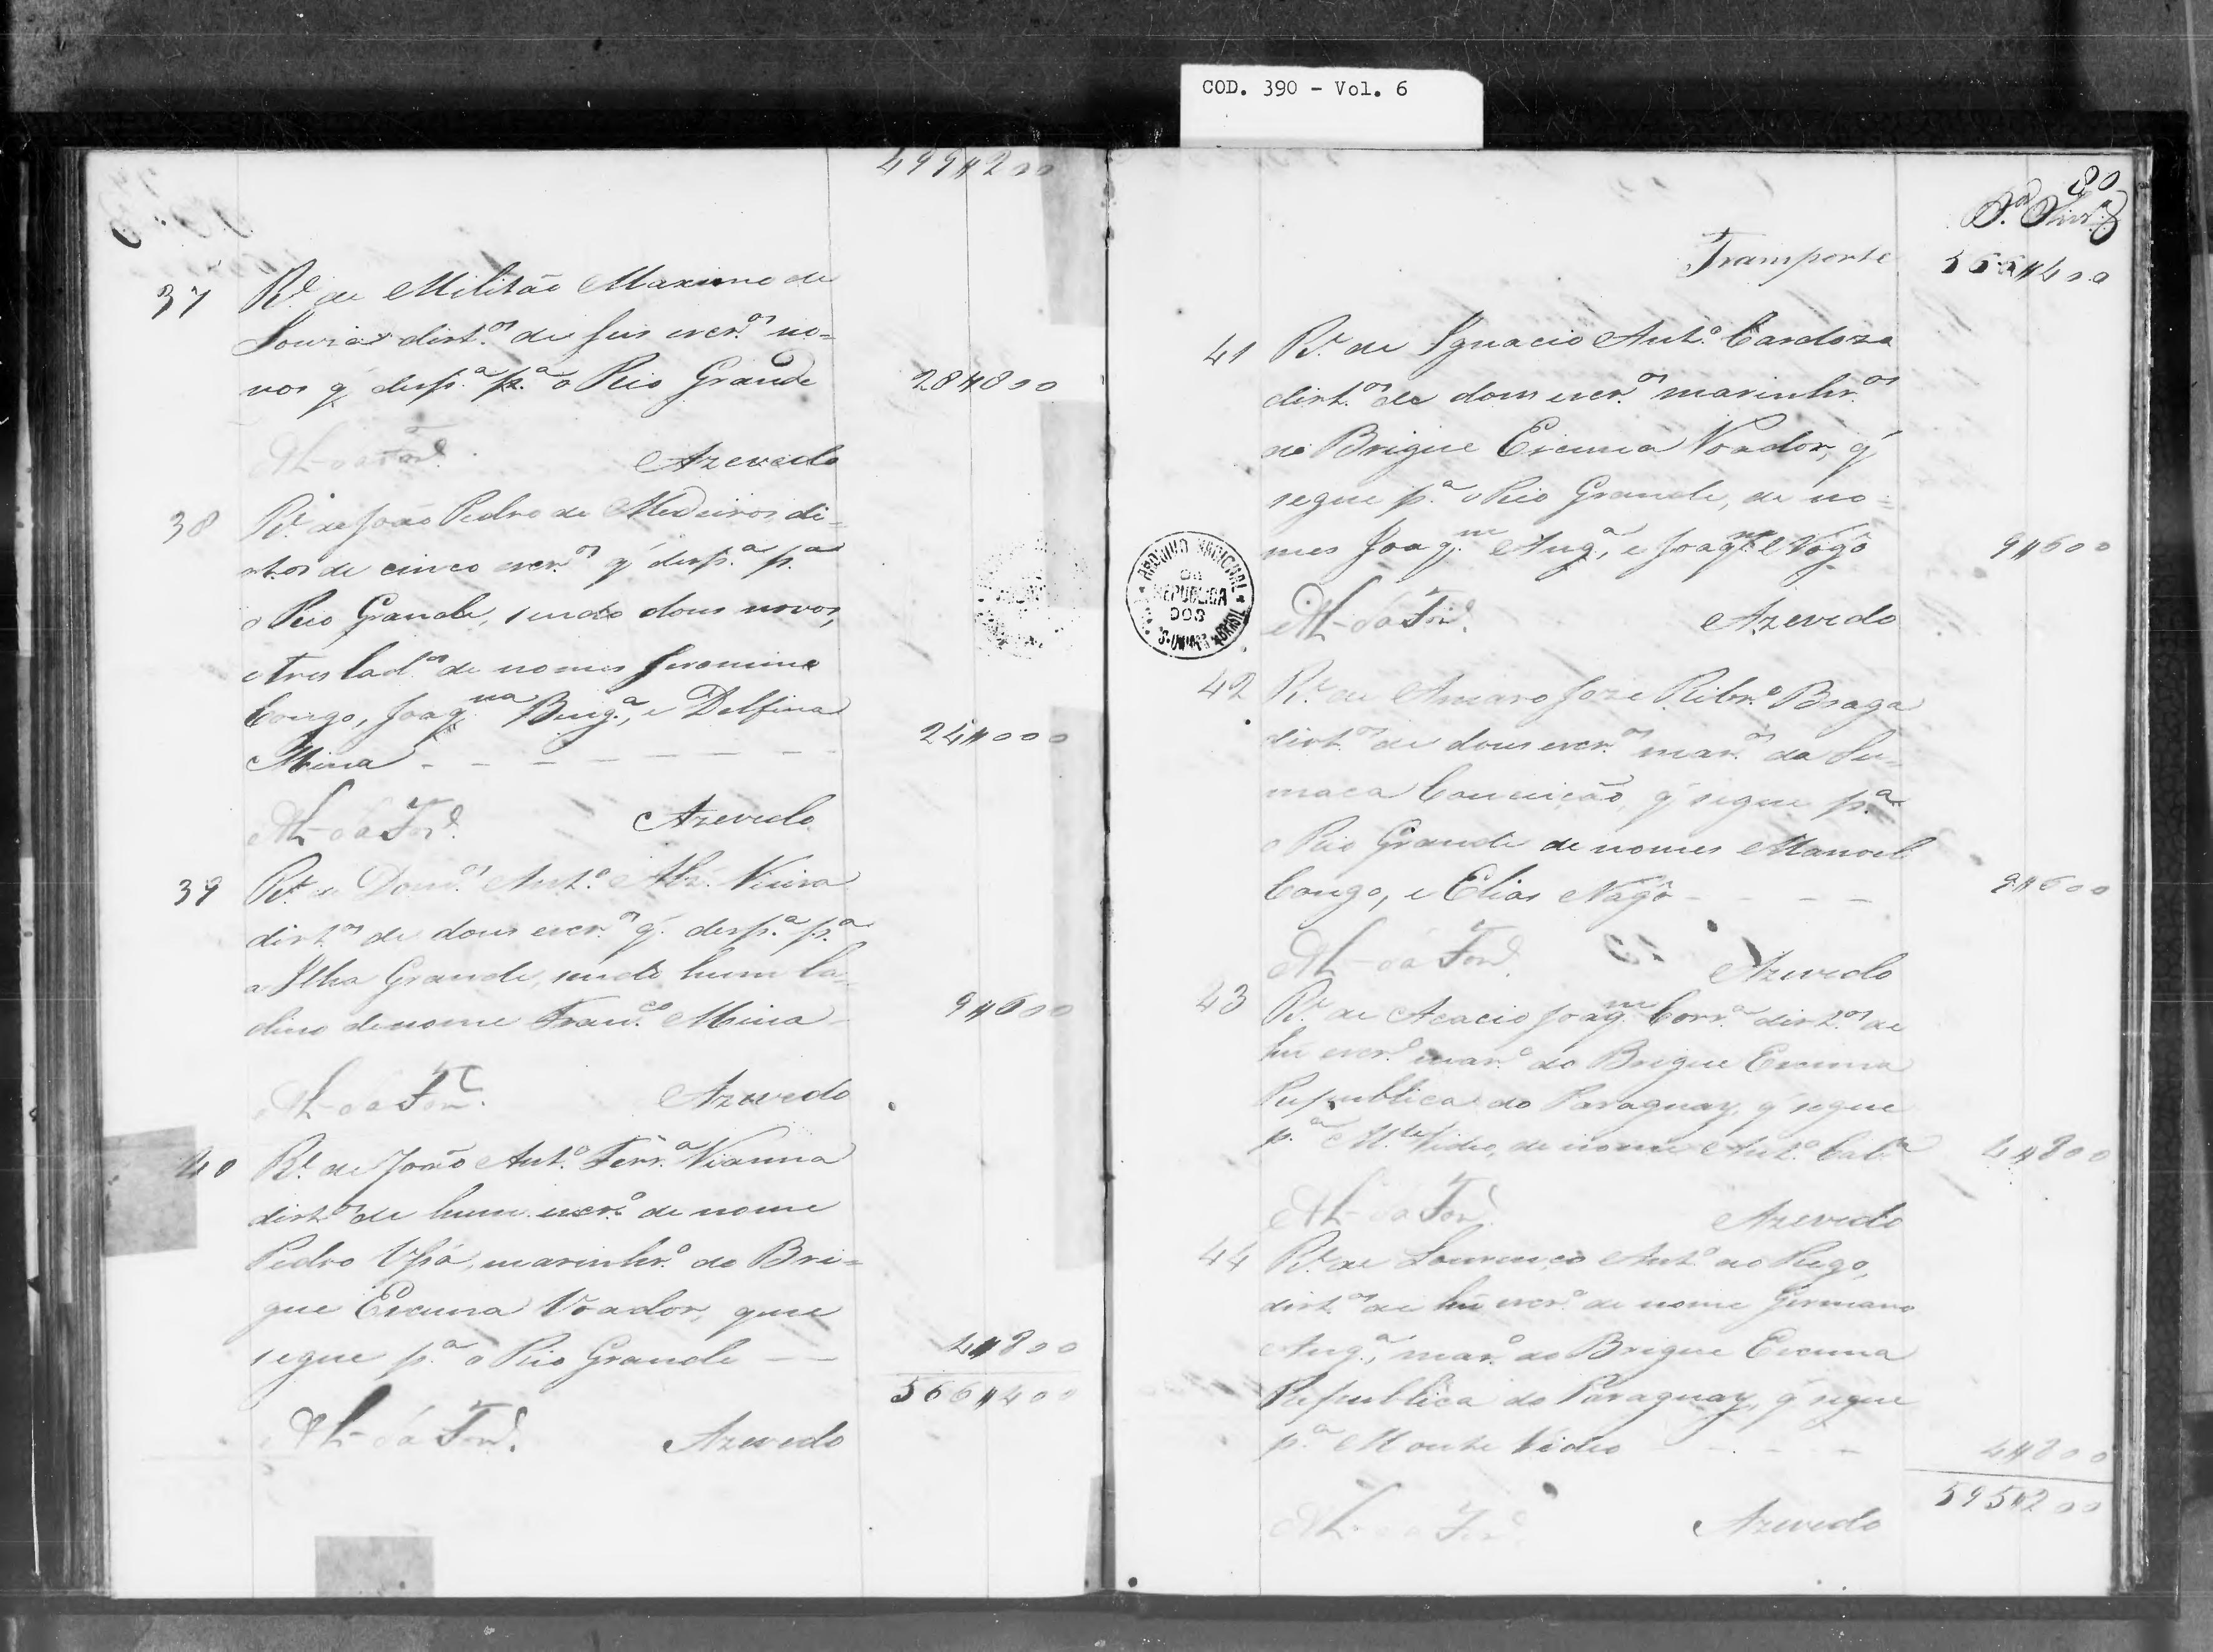 COD. 390 - Vol. 6
499#200
37 R.e de Militão Maximo de
Souza dirt.os de seis escr.os no=
vos q' desp.a p.a o Rio Grande 28#800
Azevedo
38 R.e de João Pedro de Medeiros di=
rt.os de cinco escr.os q' desp.a p.a
o Rio Grande, sendo dous novos,
e tres lad.os de nomes Jeronimo
Congo, Joaq.na Beng.a, e Delfina
Mina - - - - - - - 24#000
Azevedo
39 R.e de Dom.os Ant.o Alz. Vieira
dirt.os de dous escr.os q' desp.a p.a
a Ilha Grande, sendo hum la=
dino de nome Fran.co Mina - 9#600
Azevedo
40 R.e de João Ant.o Ferr.a Vianna
dirt.os de hum escr.o de nome
Pedro Ussá, marinhr.o do Bri=
gue Escuna Voador, que
segue p.a o Rio Grande - - 4#800
566#400
Azevedo
80
Transporte 566#400
41 R.e de Ignacio Ant.o Cardozo
dirt.os de dous escr.os marinhr.os
do Brigue Escuna Voador, q'
segue p.a o Rio Grande, de no=
mes Joaq.m Ang.a, e Joaq.m Nagô 9#600
ARCHIVO NACIONAL
DA
REPUBLICA
DOS
E. UNIDOS DO BRASIL
Azevedo
42 R.e de Amaro Joze Ribr.o Braga
dirt.os de dous escr.os mar.os da Su=
maca Conceição, q' segue p.a
o Rio Grande de nomes Manoel
Congo, e Elias Nagô - - - - 9#600
Azevedo
43 R.e de Acacio Joaq.m Corr.a dirt.os de
hũ escr.o mar.o do Brigue Escuna
Republica do Paraguay, q' segue
p.a M.te Video, de nome Ant.o Cab.a 4#800
Azevedo
44 R.e de Lourenço Ant.o do Rego,
dirt.os de hũ escr.o de nome Germano
Ang.a, mar.o do Brigue Escuna
Republica do Paraguay, q' segue
p.a Monte Video - - - 4#800
595#200
Azevedo